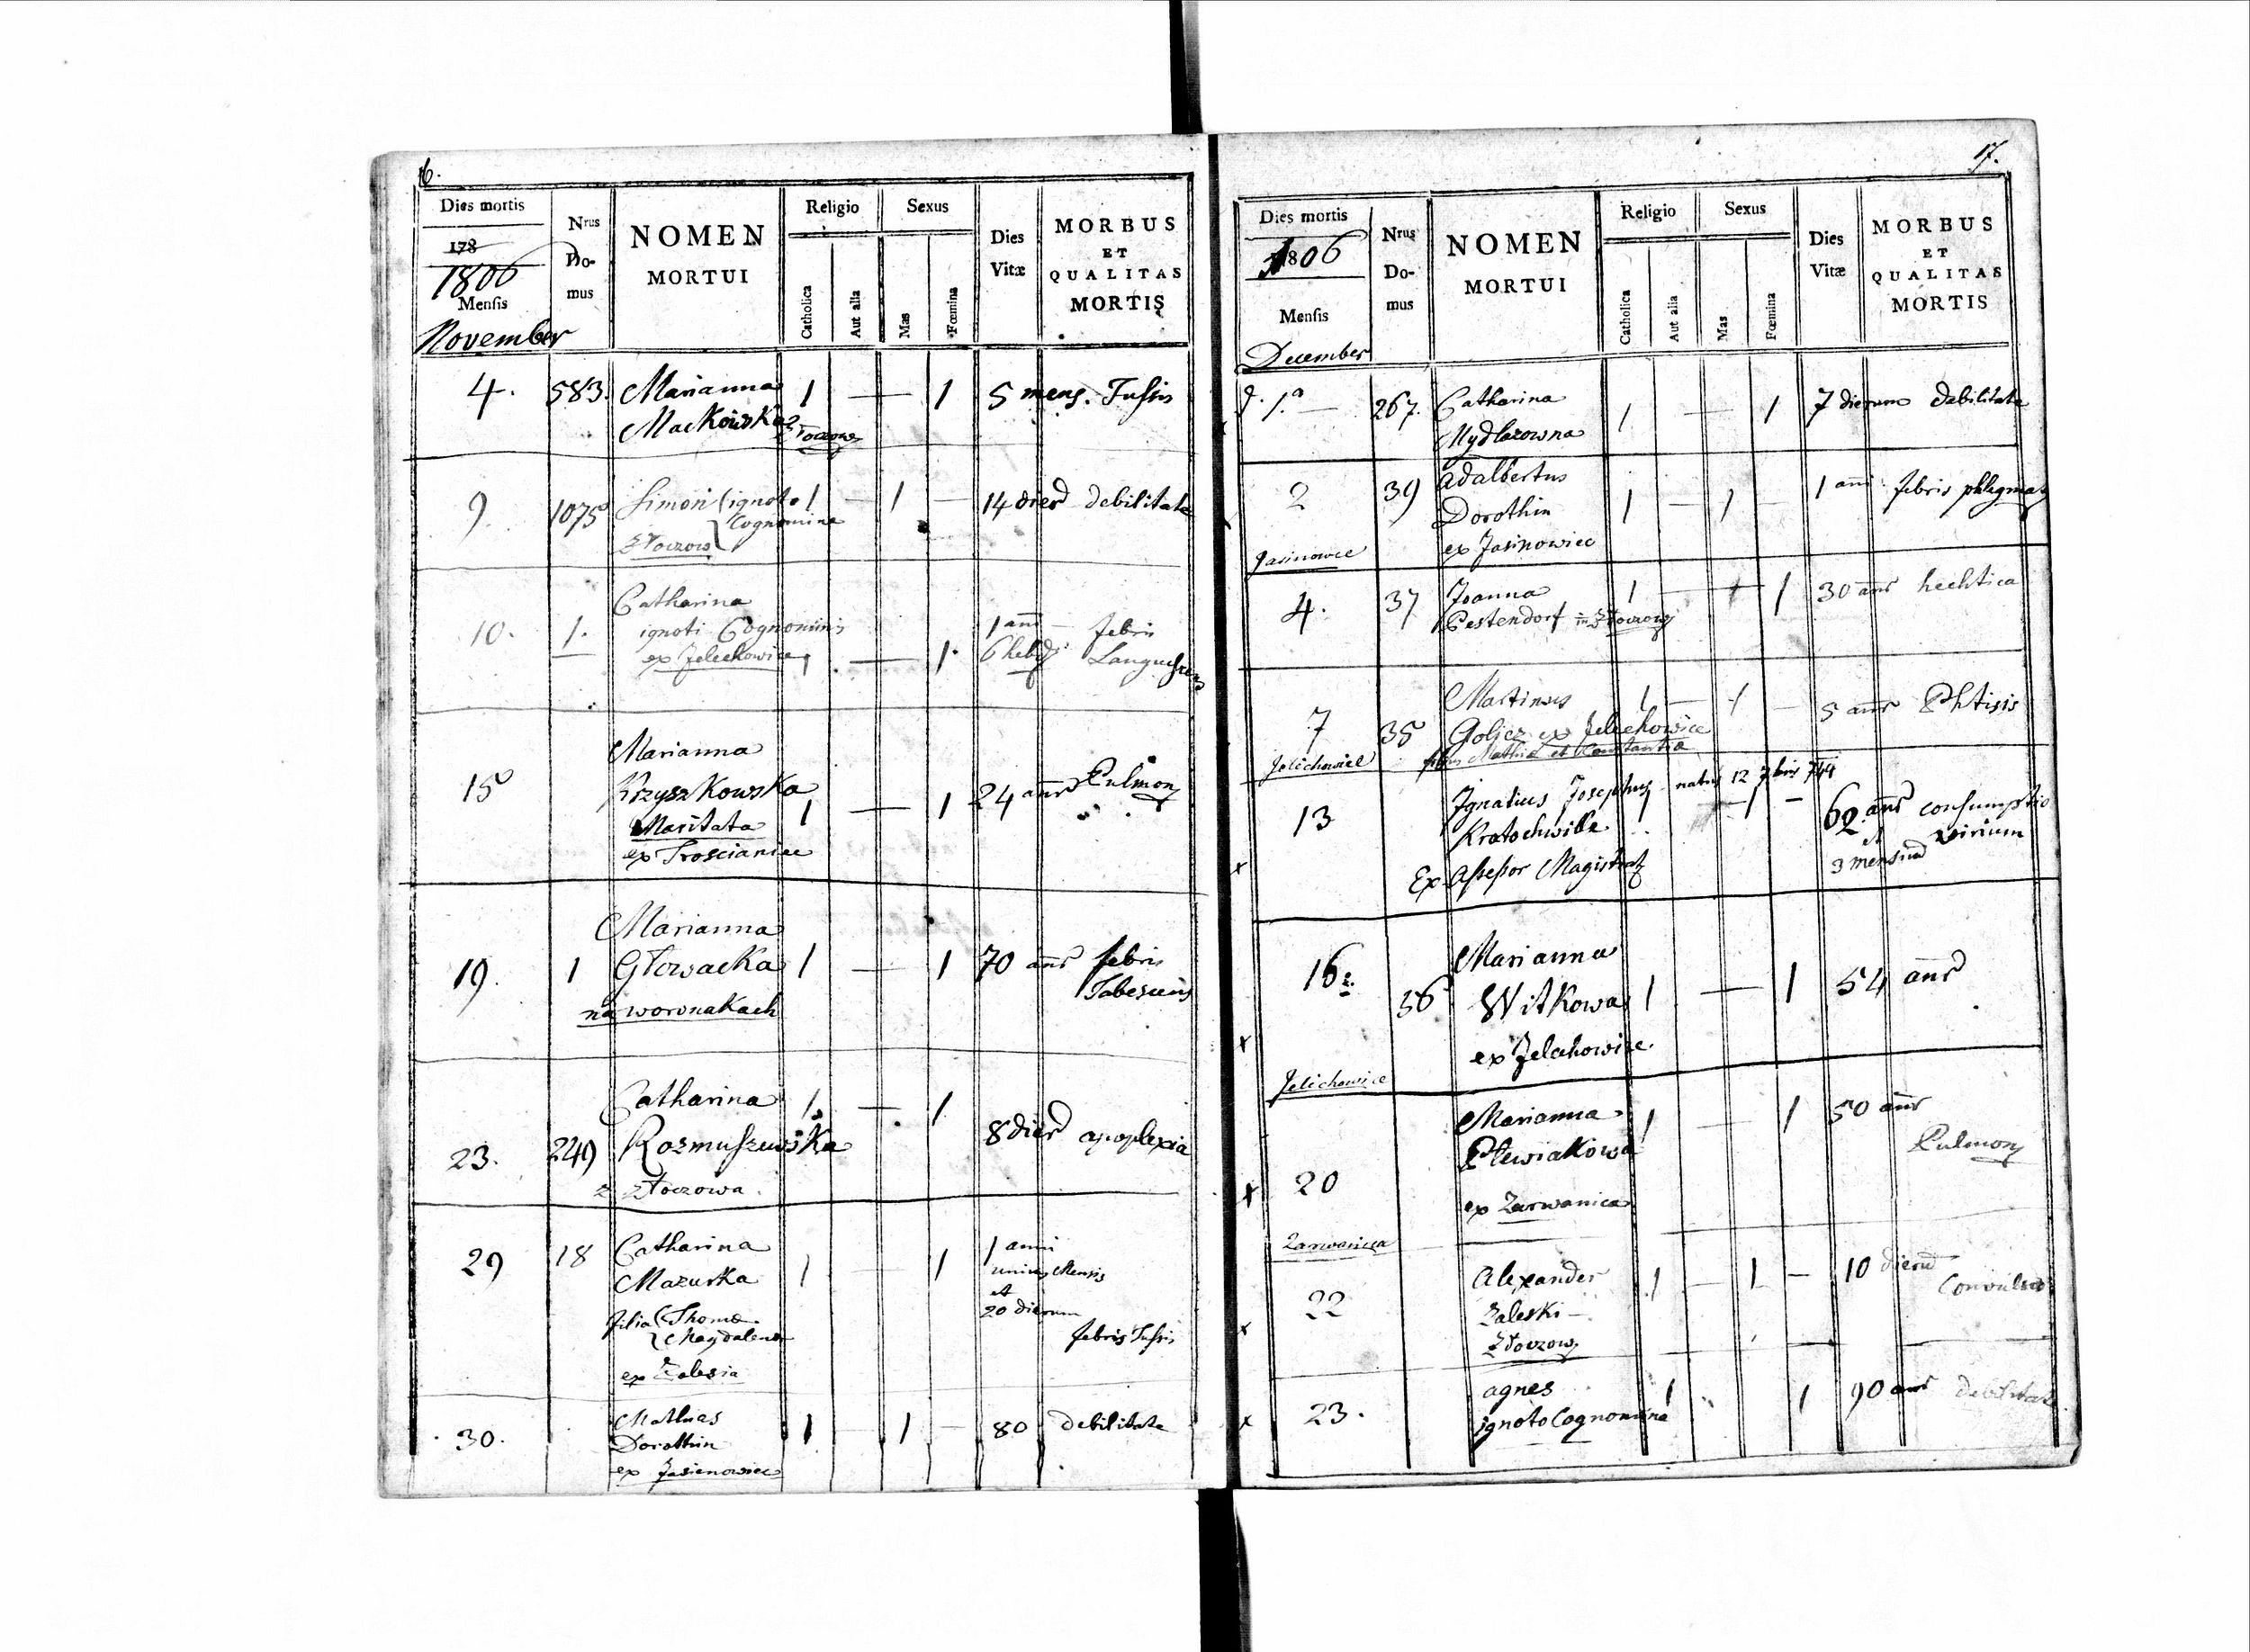 16.
Dies mortis
178
1806
Mensis
November
Nrus
Do-
mus
NOMEN
MORTUI
Religio
Catholica
Aut alia
Sexus
Mas
Fœmina
Dies
Vitæ
MORBUS
ET
QUALITAS
MORTIS
4. 583. Marianna 1 — 1 5 mens. Tussis
Mackowska
Złoczow
9. 1075 Simon (ignoto 1 — 1 — 14 dier debilitate
Cognomine
Złoczow
Catharina
10. 1. ignoti Cognominis 1 ann febris
ex Jelechowice 1 — 1. 6 hebd
Marianna
15 Krzyszkowska 1 — 1 24 annr Pulmon
Maritata
ex Troscianiec
Marianna
19. 1 Głowacka 1 — 1 70 annr febris
na woronakach
Catharina 1 — 1
23. 249 8 dier apoplexia
z Złoczowa
29 18 Catharina 1 — 1 1 anni
Mazurka unius Mensis
et
20 dierum
filia Thomæ
Magdalenæ febris Tussis
ex Zalesia
30. Mathias 1 1 — 80 debilitate
Dorothin
ex Jasienowiec
17.
Dies mortis
1806
Mensis
December
Nrus
Do-
mus
NOMEN
MORTUI
Religio
Catholica
Aut alia
Sexus
Mas
Fœmina
Dies
Vitæ
MORBUS
ET
QUALITAS
MORTIS
d. 1.a — 267. Catharina 1 — 1 7 dierum debilitate
Mydlarowna
2 39 Adalbertus 1 — 1 — 1 ann febris phlegmat
Dorothin
Jasinowce ex Jasinowiec
4. 37 Joanna 1 — 1 1 30 annr hechtica
Pestendorf in Złoczow
7 35 Martinus 1 — 1 — 5 annr Phtisis
Goljcz ex Jelechowice
Jelichowice filius Mathiæ et Constantiæ
13 Ignatius Josephus natus 12 7bris 744
Kratochwille 1 1 — 62 annr consumptio
et virium
Ex Assessor Magistrat 3 mensium
16 Marianna
56 Witkowa 1 — 1 54 annr
ex Jelechowice.
Jelichowice
Marianna 1 — 1 50 annr
Plewiakowa Pulmon
20
ex Zarwanica
Zarwanica
Alexander 1 — 1 — 10 dierum
22 Zaleski —
Złoczow
agnes 1 1 90 annr debilitate
23. ignoto Cognomine